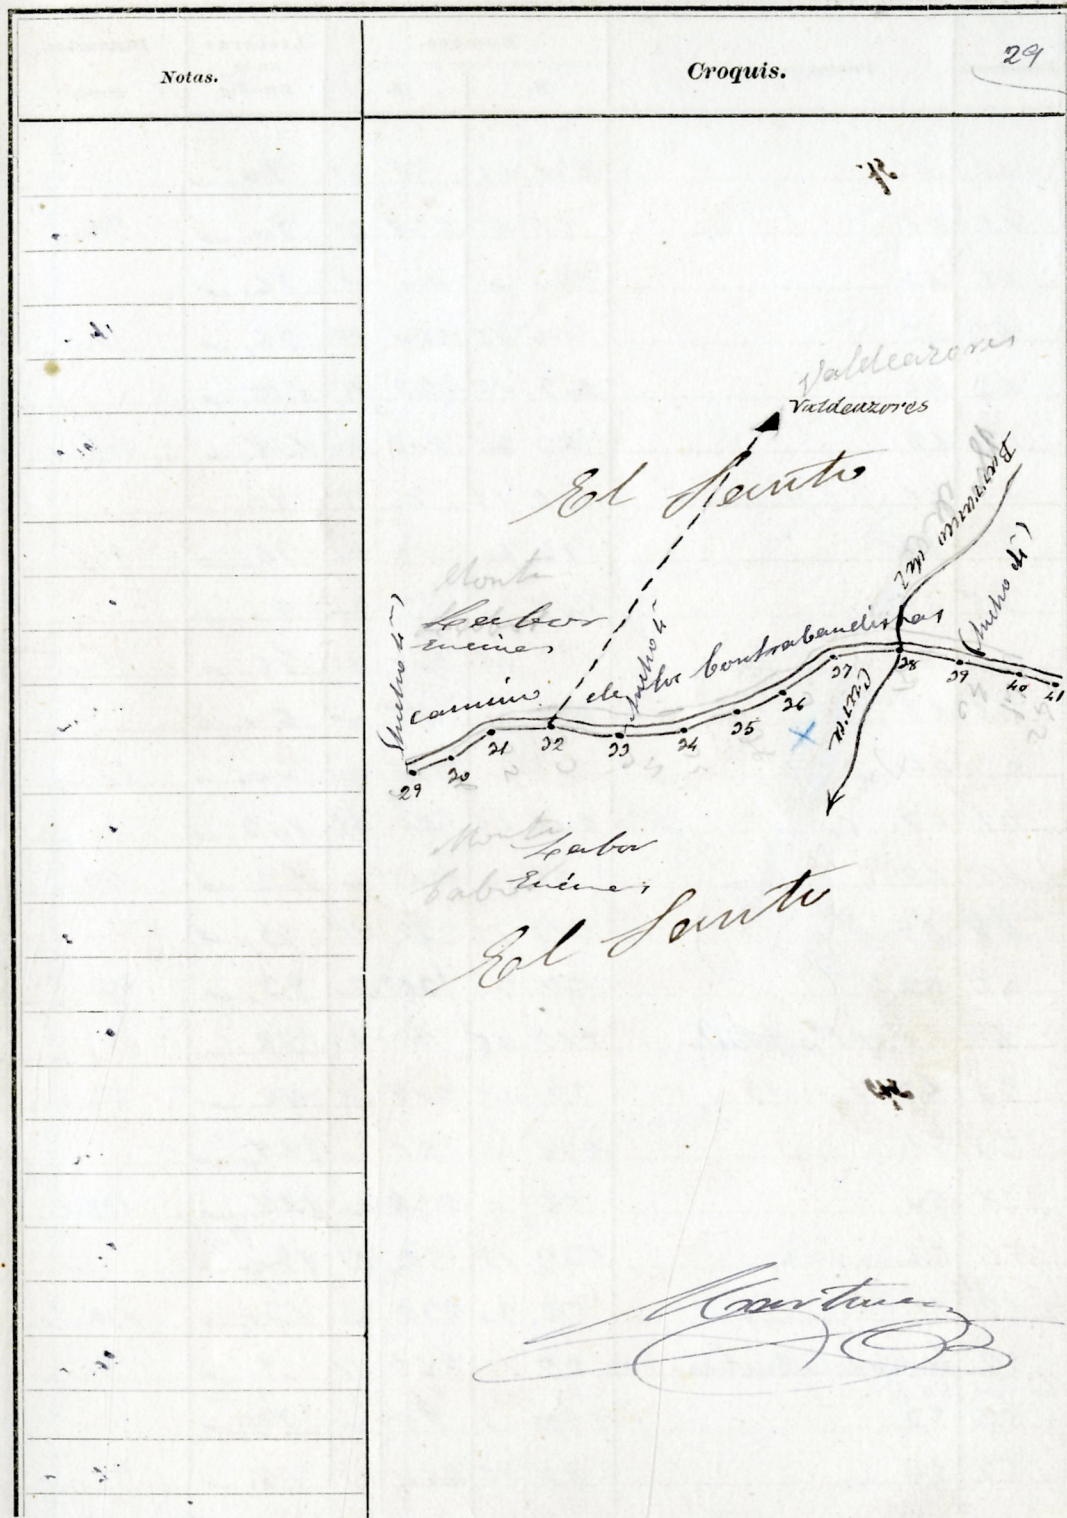 29
Notas.
Croquis.
Valdeazores
Valdeazores
El Santo
Barranco del
Cura
Monte
Labor
Encinas
Ancho 4 m
Ancho 4 m
Ancho 4
camino de los Contrabandistas
29 30 31 32 33 34 35 36 37 38 39 40 41
Monte
Labor
Encinas
El Santo
Martinez